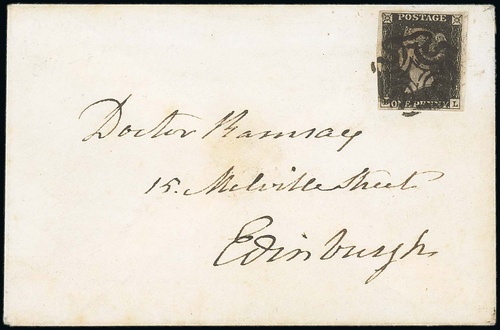 POSTAGE
ONE PENNY
L
Doctor Ramsay
15. Melville Street
Edinburgh